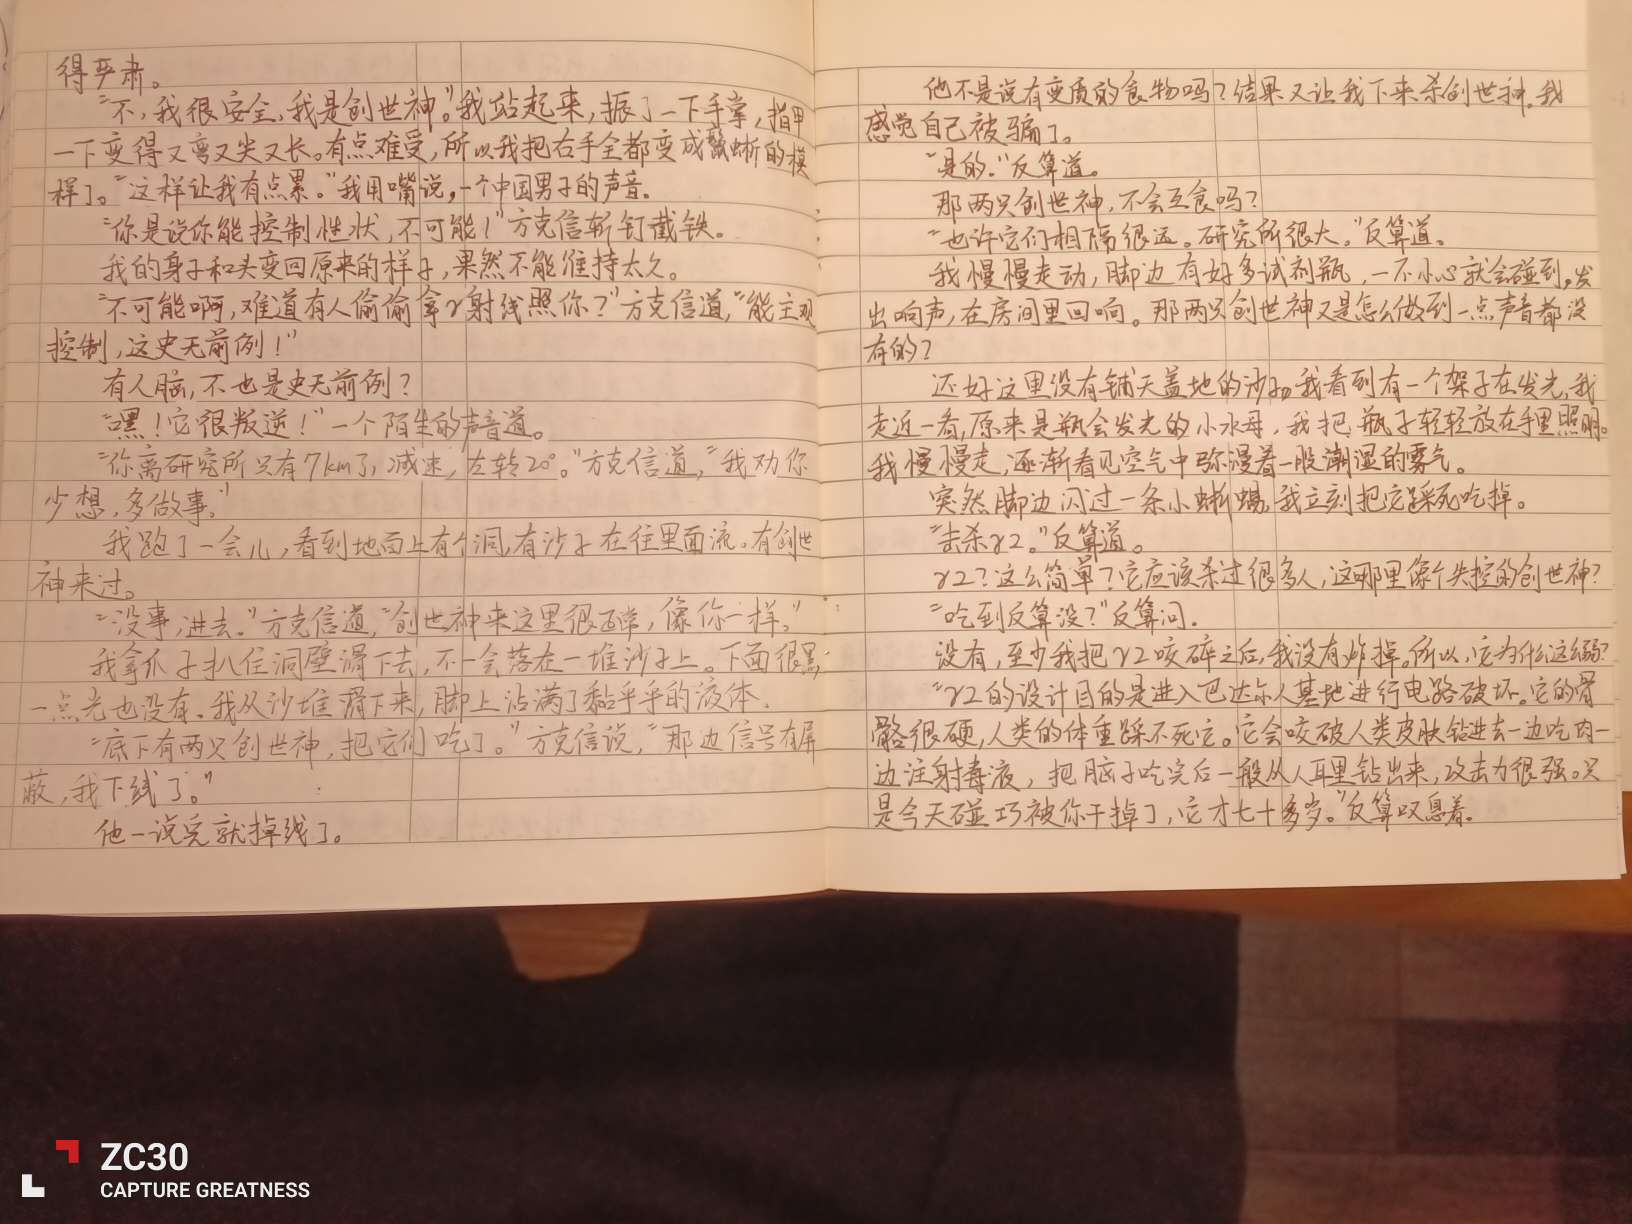 得严肃。
“不,我很安全,我是创世神。”我站起来,振了一下手掌,指甲
一下变得又弯又尖又长。有点难受,所以我把右手全都变成蜥蜴的模
样了。“这样让我有点累。”我用嘴说,一个中国男子的声音.
“你是说你能控制性状,不可能!”方克信斩钉截铁。
我的身子和头变回原来的样子,果然不能维持太久。
“不可能啊,难道有人偷偷拿γ射线照你?”方克信道,“能主观
控制,这史无前例!”
有人脑,不也是史无前例?
“嘿!它很叛逆!”一个陌生的声音道。
“你离研究所只有7km了,减速,左转20°。”方克信道,“我劝你
少想,多做事。”
我跑了一会儿,看到地面上有个洞,有沙子在往里面流。有创世
神来过。
“没事,进去。”方克信道,“创世神来这里很正常,像你一样。”
我拿爪子扒住洞壁滑下去,不一会落在一堆沙子上。下面很黑,
一点光也没有.我从沙堆滑下来,脚上沾满了黏乎乎的液体.
“底下有两只创世神,把它们吃了。”方克信说,“那边信号有屏
蔽,我下线了。”
他一说完就掉线了。
他不是说有变质的食物吗?结果又让我下来杀创世神.我
感觉自己被骗了。
“是的.”反算道。
那两只创世神,不会互食吗?
“也许它们相隔很远。研究所很大。”反算道。
我慢慢走动,脚边有好多试剂瓶,一不小心就会碰到,发
出响声,在房间里回响。那两只创世神又是怎么做到一点声音都没
有的?
还好这里没有铺天盖地的沙子。我看到有一个架子在发光,我
走近一看,原来是瓶会发光的小水母,我把瓶子轻轻放在手里照明。
我慢慢走,逐渐看见空气中弥漫着一股潮湿的雾气。
突然脚边闪过一条小蜥蜴,我立刻把它踩死吃掉。
“击杀γ2。”反算道。
γ2?这么简单?它应该杀过很多人,这哪里像个失控的创世神?
“吃到反算没?”反算问.
没有,至少我把γ2咬碎之后,我没有炸掉。所以,它为什么这么弱?
“γ2的设计目的是进入巴达尔人基地进行电路破坏。它的骨
骼很硬,人类的体重踩不死它。它会咬破人类皮肤钻进去一边吃肉一
边注射毒液,把脑子吃完后一般从人耳里钻出来,攻击力很强。只
是今天碰巧被你干掉了,它才七十多岁。”反算叹息着.
ZC30
CAPTURE GREATNESS